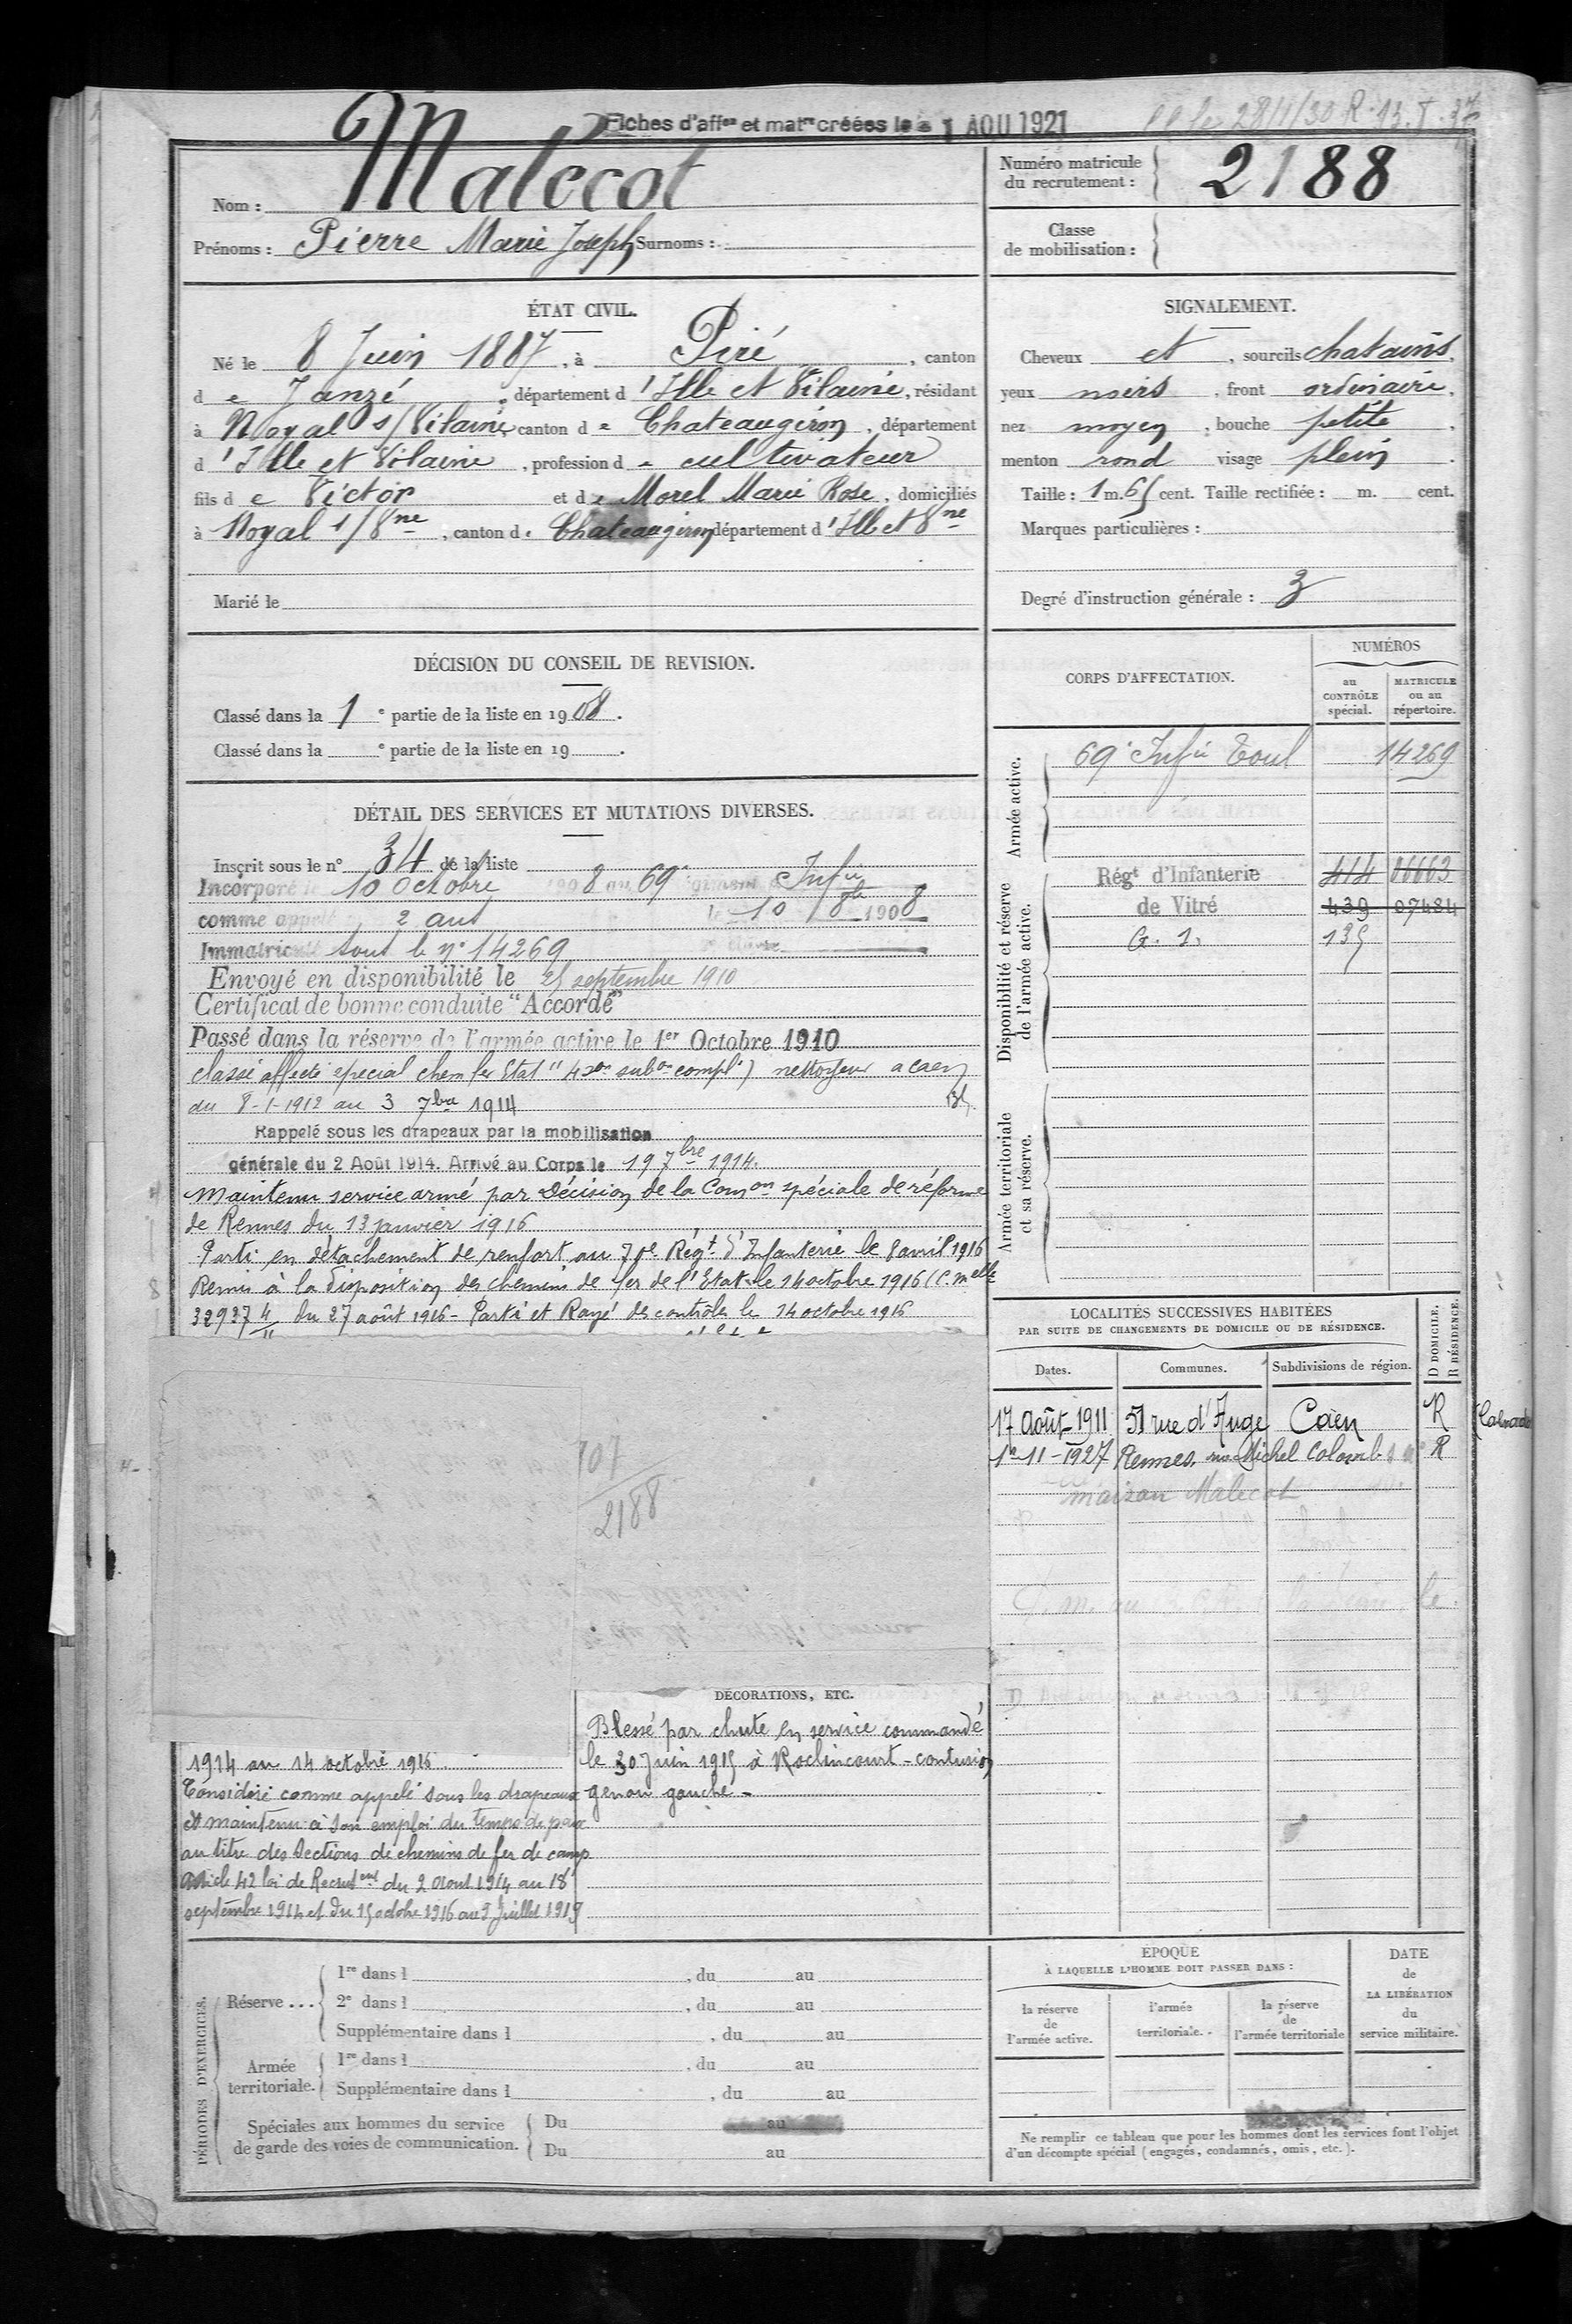 Fiches d'affon et matre créées le 1 AOU 1921
Malécot
Nom :
Prénoms : Pierre Marie Joseph Surnoms :
Numéro matricule du recrutement : 2188
Classe de mobilisation :
ÉTAT CIVIL.
Né le 8 Juin 1887, à Piré, canton
de Janzé, département d'Ille et Vilaine, résidant
à Noyal s/Vilaine, canton de Chateaugiron, département
d'Ille et Vilaine, profession de cultivateur
fils de Victor et de Morel Marie Rose, domiciliés
à Noyal s/Vne, canton de Chateaugiron département d'Ill et Vne
Marié le
SIGNALEMENT.
Cheveux et, sourcils chatains,
yeux noirs, front ordinaire,
nez moyen, bouche petite,
menton rond visage plein.
Taille : 1 m. 65 cent. Taille rectifiée : m. cent.
Marques particulières :
Degré d'instruction générale : 3
DÉCISION DU CONSEIL DE REVISION.
Classé dans la 1e partie de la liste en 1908.
Classé dans la e partie de la liste en 19 .
DÉTAIL DES SERVICES ET MUTATIONS DIVERSES.
Inscrit sous le n° 34 de la liste
Incorporé le 10 Octobre 1908 au 69e régiment Infie
comme appelé 2 ans le 10 8bre 1908
Immatriculé sous le n° 14269
Envoyé en disponibilité le 25 septembre 1910
Certificat de bonne conduite "Accordé"
Passé dans la réserve de l'armée active le 1er Octobre 1910
classé affecté spécial chem fer Etat "4 son subon compl") nettoyeur a caen
du 8-1-1912 au 3 7bre 1914
Rappelé sous les drapeaux par la mobilisation
générale du 2 Août 1914. Arrivé au Corps le 19 7bre 1914.
Maintenu service armé par Décision de la Comon spéciale de réforme
de Rennes du 13 janvier 1916
Parti en détachement de renfort au 70e Régt d'Infanterie le 8 avril 1916
Remis à la disposition des chemins de fer de l'Etat le 14 octobre 1916 (C. melle
32937 4/11 du 27 août 1916 - Parti et Rayé des contrôles le 14 octobre 1916
CORPS D'AFFECTATION.
NUMÉROS
au CONTRÔLE spécial.
MATRICULE ou au répertoire.
Armée active.
69e Infie Toul 14269
Disponibilité et réserve de l'armée active.
Régt d'Infanterie 414 06663
de Vitré 439 07484
G. 1. 135
Armée territoriale et sa réserve.
LOCALITÉS SUCCESSIVES HABITÉES
PAR SUITE DE CHANGEMENTS DE DOMICILE OU DE RÉSIDENCE.
D DOMICILE.
R RÉSIDENCE.
Dates. Communes. Subdivisions de région.
17 Août 1911 51 rue d'Auge Caen R Calvados
1er-11-1927 Rennes, rue Michel Colomb R
maison Malecot
107
2188
DÉCORATIONS, ETC.
Blessé par chute en service commandé
le 30 Juin 1915 à Roclincourt - contusion
genou gauche -
1914 au 14 octobre 1916
Considéré comme appelé sous les drapeaux
et maintenu à son emploi du temps de paix
au titre des Sections de chemins de fer de camp
article 42 loi de Recrutent du 2 aout 1914 au 18
septembre 1914 et du 15 octobre 1916 au 9 Juillet 1919
PÉRIODES D'EXERCICES.
Réserve ...
1re dans l , du au
2e dans l , du au
Supplémentaire dans l , du au
Armée territoriale.
1re dans l , du au
Supplémentaire dans l , du au
Spéciales aux hommes du service de garde des voies de communication.
Du au
Du au
ÉPOQUE
À LAQUELLE L'HOMME DOIT PASSER DANS :
la réserve de l'armée active.
l'armée territoriale.
la réserve de l'armée territoriale
DATE de LA LIBÉRATION du service militaire.
Ne remplir ce tableau que pour les hommes dont les services font l'objet
d'un décompte spécial (engagés, condamnés, omis, etc.).